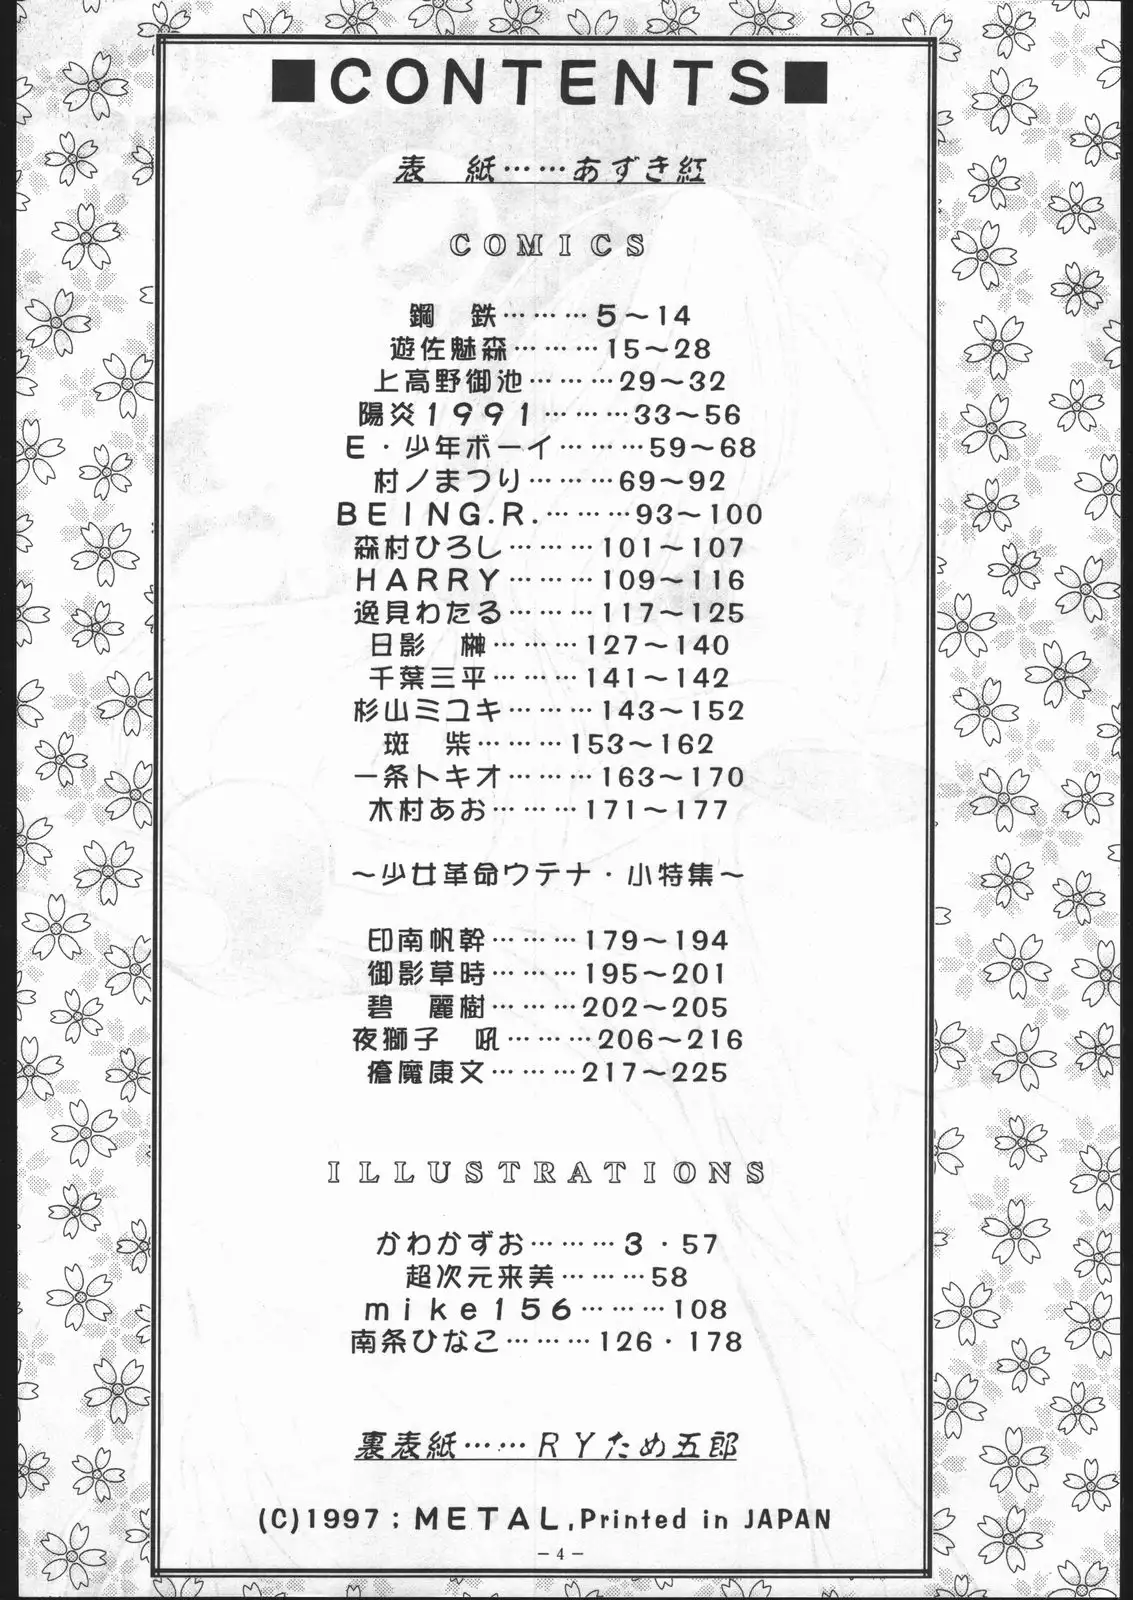 ■CONTENTS■
表　紙……あずき紅
COMICS
鋼　鉄………5～14
遊佐魅森………15～28
上高野御池………29～32
陽炎1991………33～56
E・少年ボーイ………59～68
村ノまつり………69～92
BEING.R.………93～100
森村ひろし………101～107
HARRY………109～116
逸見わたる………117～125
日影　榊………127～140
千葉三平………141～142
杉山ミユキ………143～152
斑　柴………153～162
一条トキオ………163～170
木村あお………171～177
～少女革命ウテナ・小特集～
印南帆幹………179～194
御影草時………195～201
碧　麗樹………202～205
夜獅子　吼………206～216
瘡魔康文………217～225
ILLUSTRATIONS
かわかずお………3・57
超次元来美………58
mike156………108
南条ひなこ………126・178
裏表紙……RYため五郎
(C)1997;METAL,Printed in JAPAN
－4－